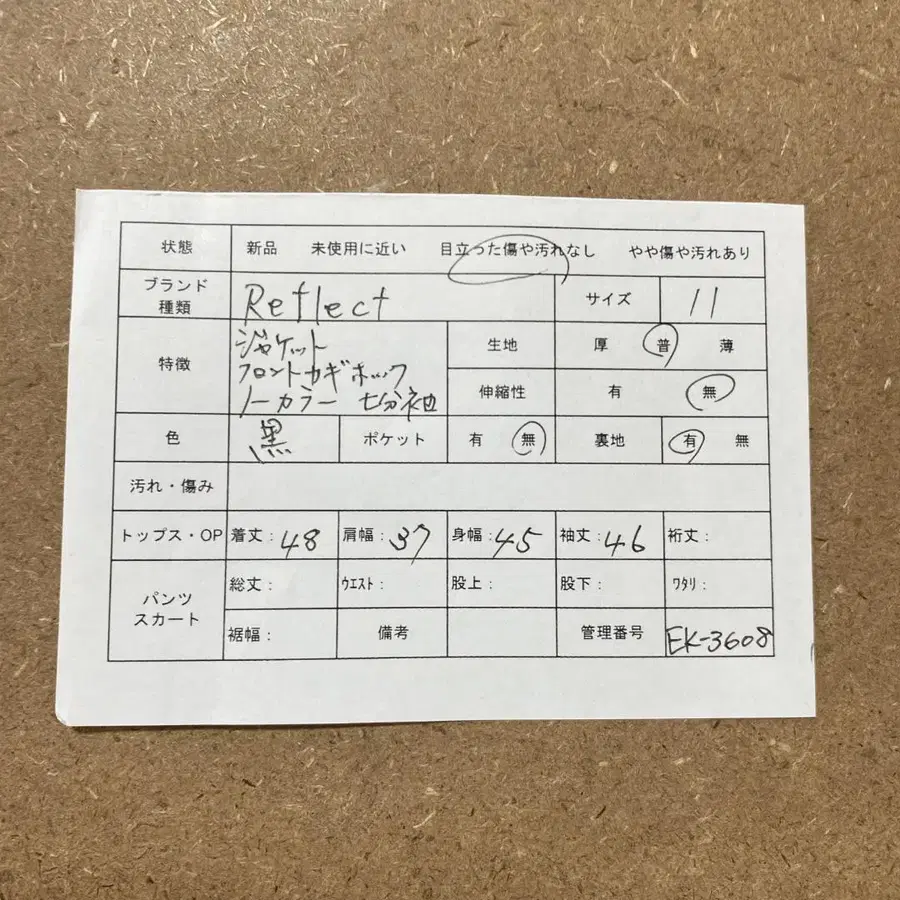 状態 新品 未使用に近い 目立った傷や汚れなし やや傷や汚れあり
ブランド 種類 Reflect サイズ 11
特徴 ジャケット
フロントカギホック
ノーカラー 七分袖
生地 厚 普 薄
伸縮性 有 無
色 黒 ポケット 有 無 裏地 有 無
汚れ・傷み
トップス・OP 着丈:48 肩幅:37 身幅:45 袖丈:46 裄丈:
パンツ スカート 総丈: ウエスト: 股上: 股下: ワタリ:
裾幅: 備考 管理番号 EK-3608